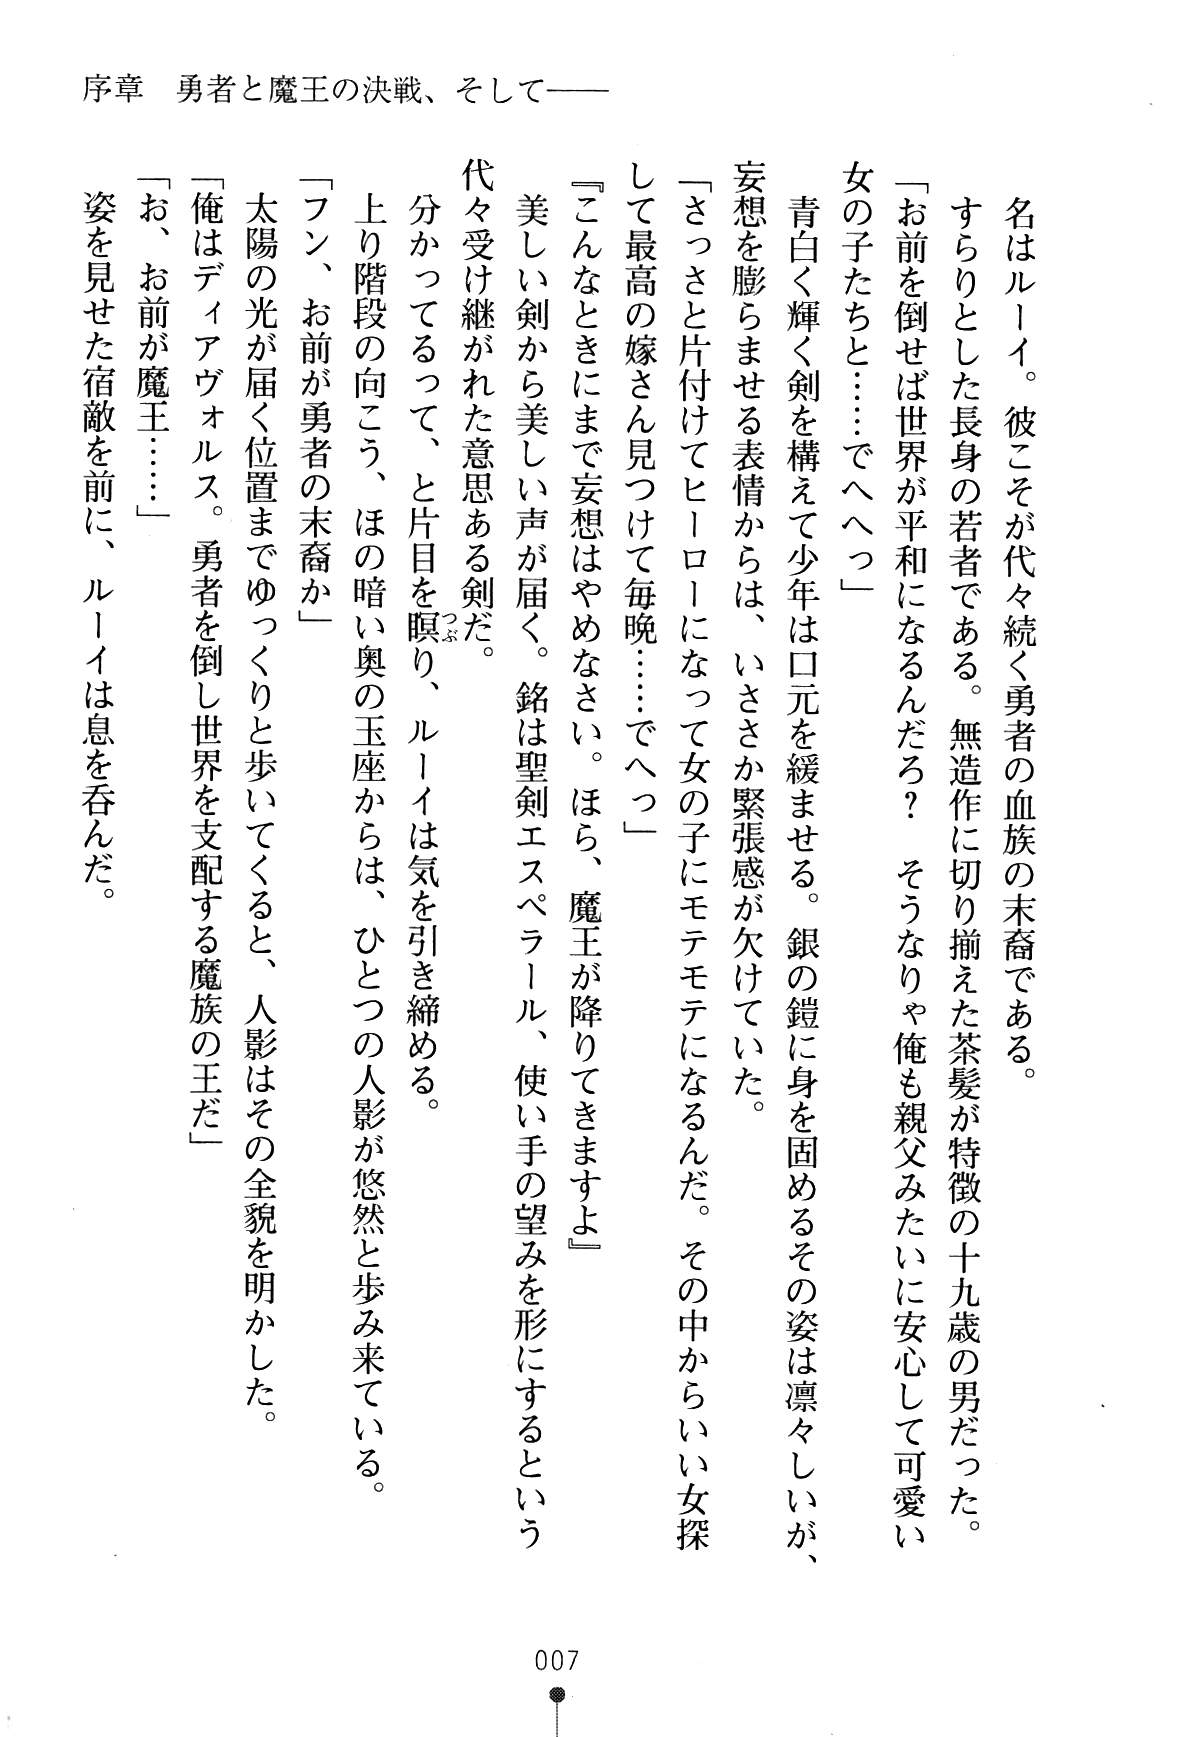 序章　勇者と魔王の決戦、そして――
名はルーイ。彼こそが代々続く勇者の血族の末裔である。
すらりとした長身の若者である。無造作に切り揃えた茶髪が特徴の十九歳の男だった。
「お前を倒せば世界が平和になるんだろ？　そうなりゃ俺も親父みたいに安心して可愛い
女の子たちと……でへへっ」
青白く輝く剣を構えて少年は口元を緩ませる。銀の鎧に身を固めるその姿は凛々しいが、
妄想を膨らませる表情からは、いささか緊張感が欠けていた。
「さっさと片付けてヒーローになって女の子にモテモテになるんだ。その中からいい女探
して最高の嫁さん見つけて毎晩……でへっ」
『こんなときにまで妄想はやめなさい。ほら、魔王が降りてきますよ』
美しい剣から美しい声が届く。銘は聖剣エスペラール、使い手の望みを形にするという
代々受け継がれた意思ある剣だ。
分かってるって、と片目を瞑り、ルーイは気を引き締める。
つぶ
上り階段の向こう、ほの暗い奥の玉座からは、ひとつの人影が悠然と歩み来ている。
「フン、お前が勇者の末裔か」
太陽の光が届く位置までゆっくりと歩いてくると、人影はその全貌を明かした。
「俺はディアヴォルス。勇者を倒し世界を支配する魔族の王だ」
「お、お前が魔王……」
姿を見せた宿敵を前に、ルーイは息を呑んだ。
007